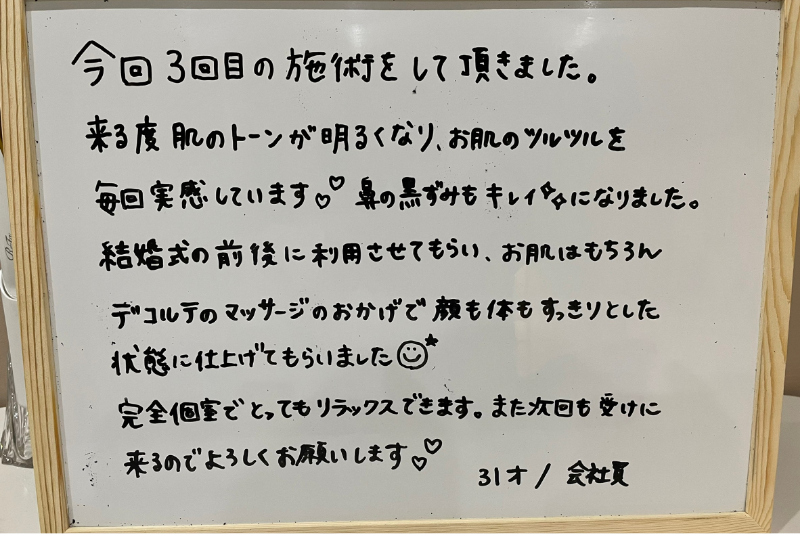 今回3回目の施術をして頂きました。
来る度 肌のトーンが明るくなり、お肌のツルツルを
毎回実感しています♡♡ 鼻の黒ずみもキレイ✧✧になりました。
結婚式の前後に利用させてもらい、お肌はもちろん
デコルテのマッサージのおかげで 顔も体もすっきりとした
状態に仕上げてもらいました☺*
完全個室でとってもリラックスできます。また次回も受けに
来るのでよろしくお願いします♡♡
31才 / 会社員